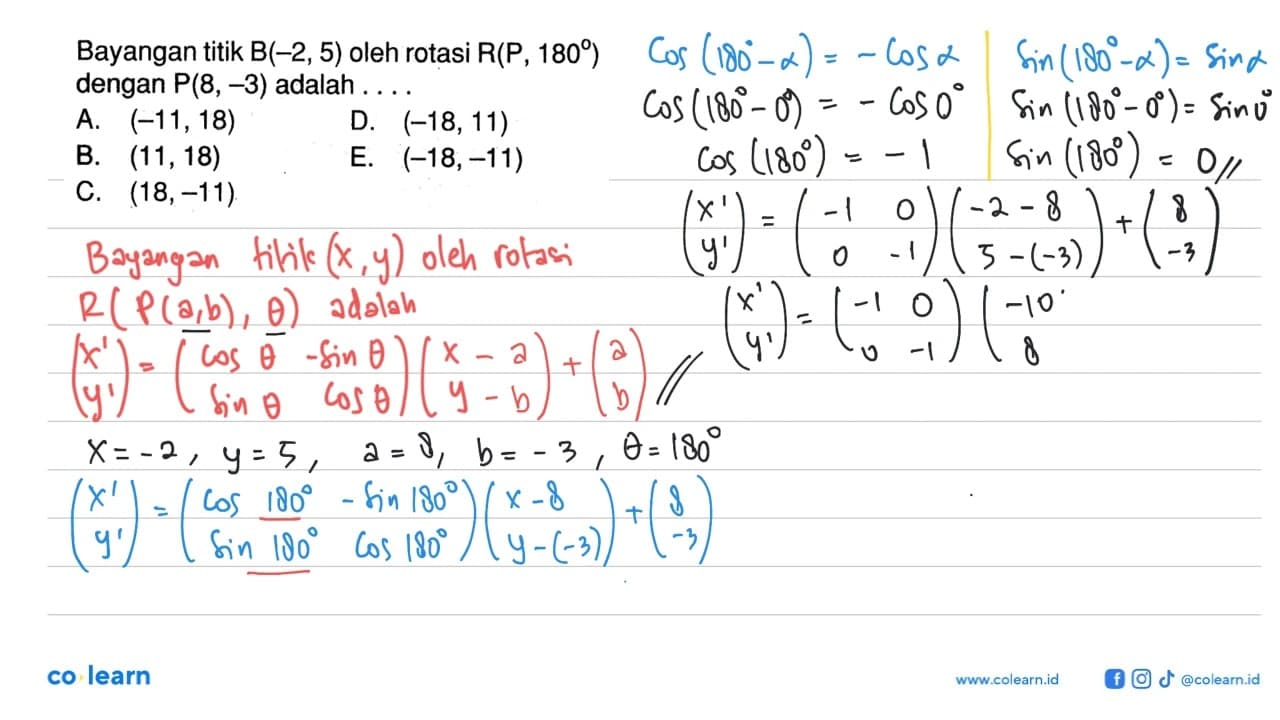 Bayangan titik B(–2, 5) oleh rotasi R(P, 180⁰)
dengan P(8, –3) adalah . . . .
A. (–11, 18) D. (–18, 11)
B. (11, 18) E. (–18, –11)
C. (18, –11)
Cos (180° - α) = - Cos α
Cos (180° - 0°) = - Cos 0°
Cos (180°) = - 1
Sin (180° - α) = Sin α
Sin (180° - 0°) = Sin 0°
Sin (180°) = 0 //
(x' y') = (-1 0 0 -1) (-2 - 8 5 - (-3)) + (8 -3)
(x' y') = (-1 0 0 -1) (-10 8
Bayangan titik (x, y) oleh rotasi
R ( P(a,b), θ) adalah
(x' y') = (Cos θ -Sin θ Sin θ Cos θ) (x - a y - b) + (a b) //
x = -2, y = 5, a = 8, b = -3, θ = 180°
(x' y') = (Cos 180° - Sin 180° Sin 180° Cos 180°) (x - 8 y - (-3)) + (8 -3)
co learn
www.colearn.id
@colearn.id